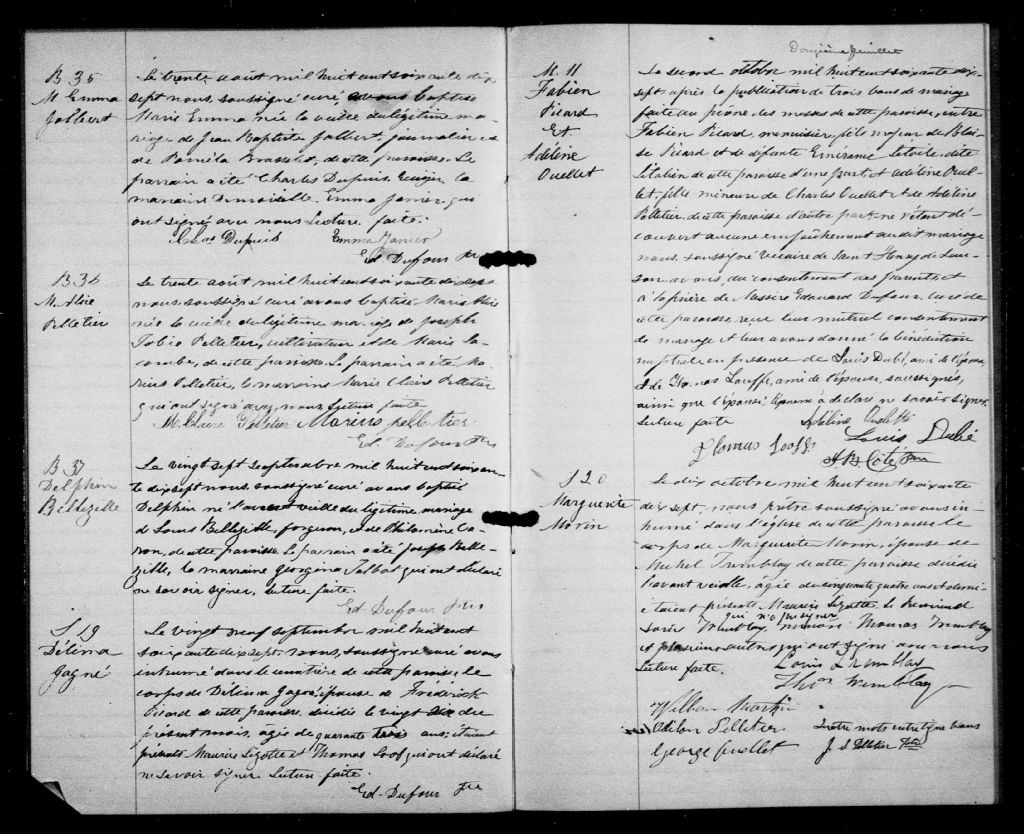 B. 35
M. Emma
Jolbert
Le trente août mil huit cent soixante dix
sept nous, soussigné curé, avons baptisé
Marie Emma née la veille du légitime ma-
riage de Jean Baptiste Jalbert, journalier et
de Paméla Brasselet, de cette paroisse. Le
parrain a été Charles Dupuis, la
marraine Demoiselle Emma, qui
ont signé avec nous. Lecture faite.
Chas Dupuis Emma
Ed. Dufour Ptre
B. 36
M. Alice
Pelletier
Le trente août mil huit cent soixante dix sept
nous, soussigné curé avons baptisé Marie Alice
née la veille du légitime mariage de Joseph
Tobie Pelletier, cultivateur et de Marie La-
combe, de cette paroisse. Le parrain a été Ma-
rius Pelletier, la marraine Marie Claire Pelletier
qui ont signé avec nous. Lecture faite
M. Claire Pelletier Marius pelletier
Ed. Dufour Ptre
B 37
Delphin
Bellezille
Le vingt sept septembre mil huit cent soixan-
te dix sept nous, soussigné curé avons baptisé
Delphin né l'avant veille du légitime mariage
de Louis Bellezille, forgeron, et de Philomène Ca-
ron, de cette paroisse. Le parrain a été Joseph Belle-
zille, la marraine Georgina Talbot qui ont déclaré
ne savoir signer. Lecture faite.
Ed. Dufour Ptre
S 19
Délima
Gagné
Le vingt neuf septembre mil huit cent
soixante dix sept, nous, soussigné curé avons
inhumé dans le cimetière de cette paroisse, le
corps de Délima Gagné épouse de Frédérick
Picard de cette paroisse décédée le vingt six du
présent mois, âgée de quarante trois ans, étaient
présents Maurice Lizotte et Thomas Looff qui ont déclaré
ne savoir signer. Lecture faite.
Ed. Dufour Ptre
Douzième feuillet
M. 11
Fabien
Picard
Et
Adéline
Ouellet
Le second octobre mil huit cent soixante dix-
sept, après la publication de trois bans de mariage
faite au prône des messes de cette paroisse, entre
Fabien Picard, menuisier, fils majeur de Blai-
se Picard et de défunte Emérance Letoile, dite
Litalien de cette paroisse d'une part, et Adéline Ouel-
let, fille mineure de Charles Ouellet et de Adéline
Pelletier, de cette paroisse d'autre part, ne s'étant dé-
couvert aucun empêchement au dit mariage
nous, soussigné vicaire de Saint Henry de Lau-
zon, avons, du consentement des parents et
à la prière de Messire Edouard Dufour, curé de
cette paroisse, reçu leur mutuel consentement
de mariage et leur avons donné la bénédiction
nuptiale en présence de Louis Dubé, ami de l'époux,
et de Thomas Looffe, ami de l'épouse, soussignés,
ainsi que l'épouse l'époux a déclaré ne savoir signer.
Lecture faite Adeline Ouellette
Thomas Looff. Louis Dubé
Côté Ptre
S 20
Marguerite
Morin
Le dix octobre mil huit cent soixante
dix sept, nous prêtre soussigné avons in-
humé dans l'église de cette paroisse le
corps de Marguerite Morin, épouse de
Michel Tremblay de cette paroisse décédée
l'avant veille, âgée de cinquante quatre ans et demi
étaient présents Maurice Lizotte, le Révérend
qui n'a pu signer
Tremblay, Thomas Tremblay
et plusieurs autres qui ont signé avec nous
Lecture faite. Louis Tremblay
Thos Tremblay
Martin
Odilon Pelletier quatre mots entreligne bons
George Ouellet J. E. Pelletier Ptre